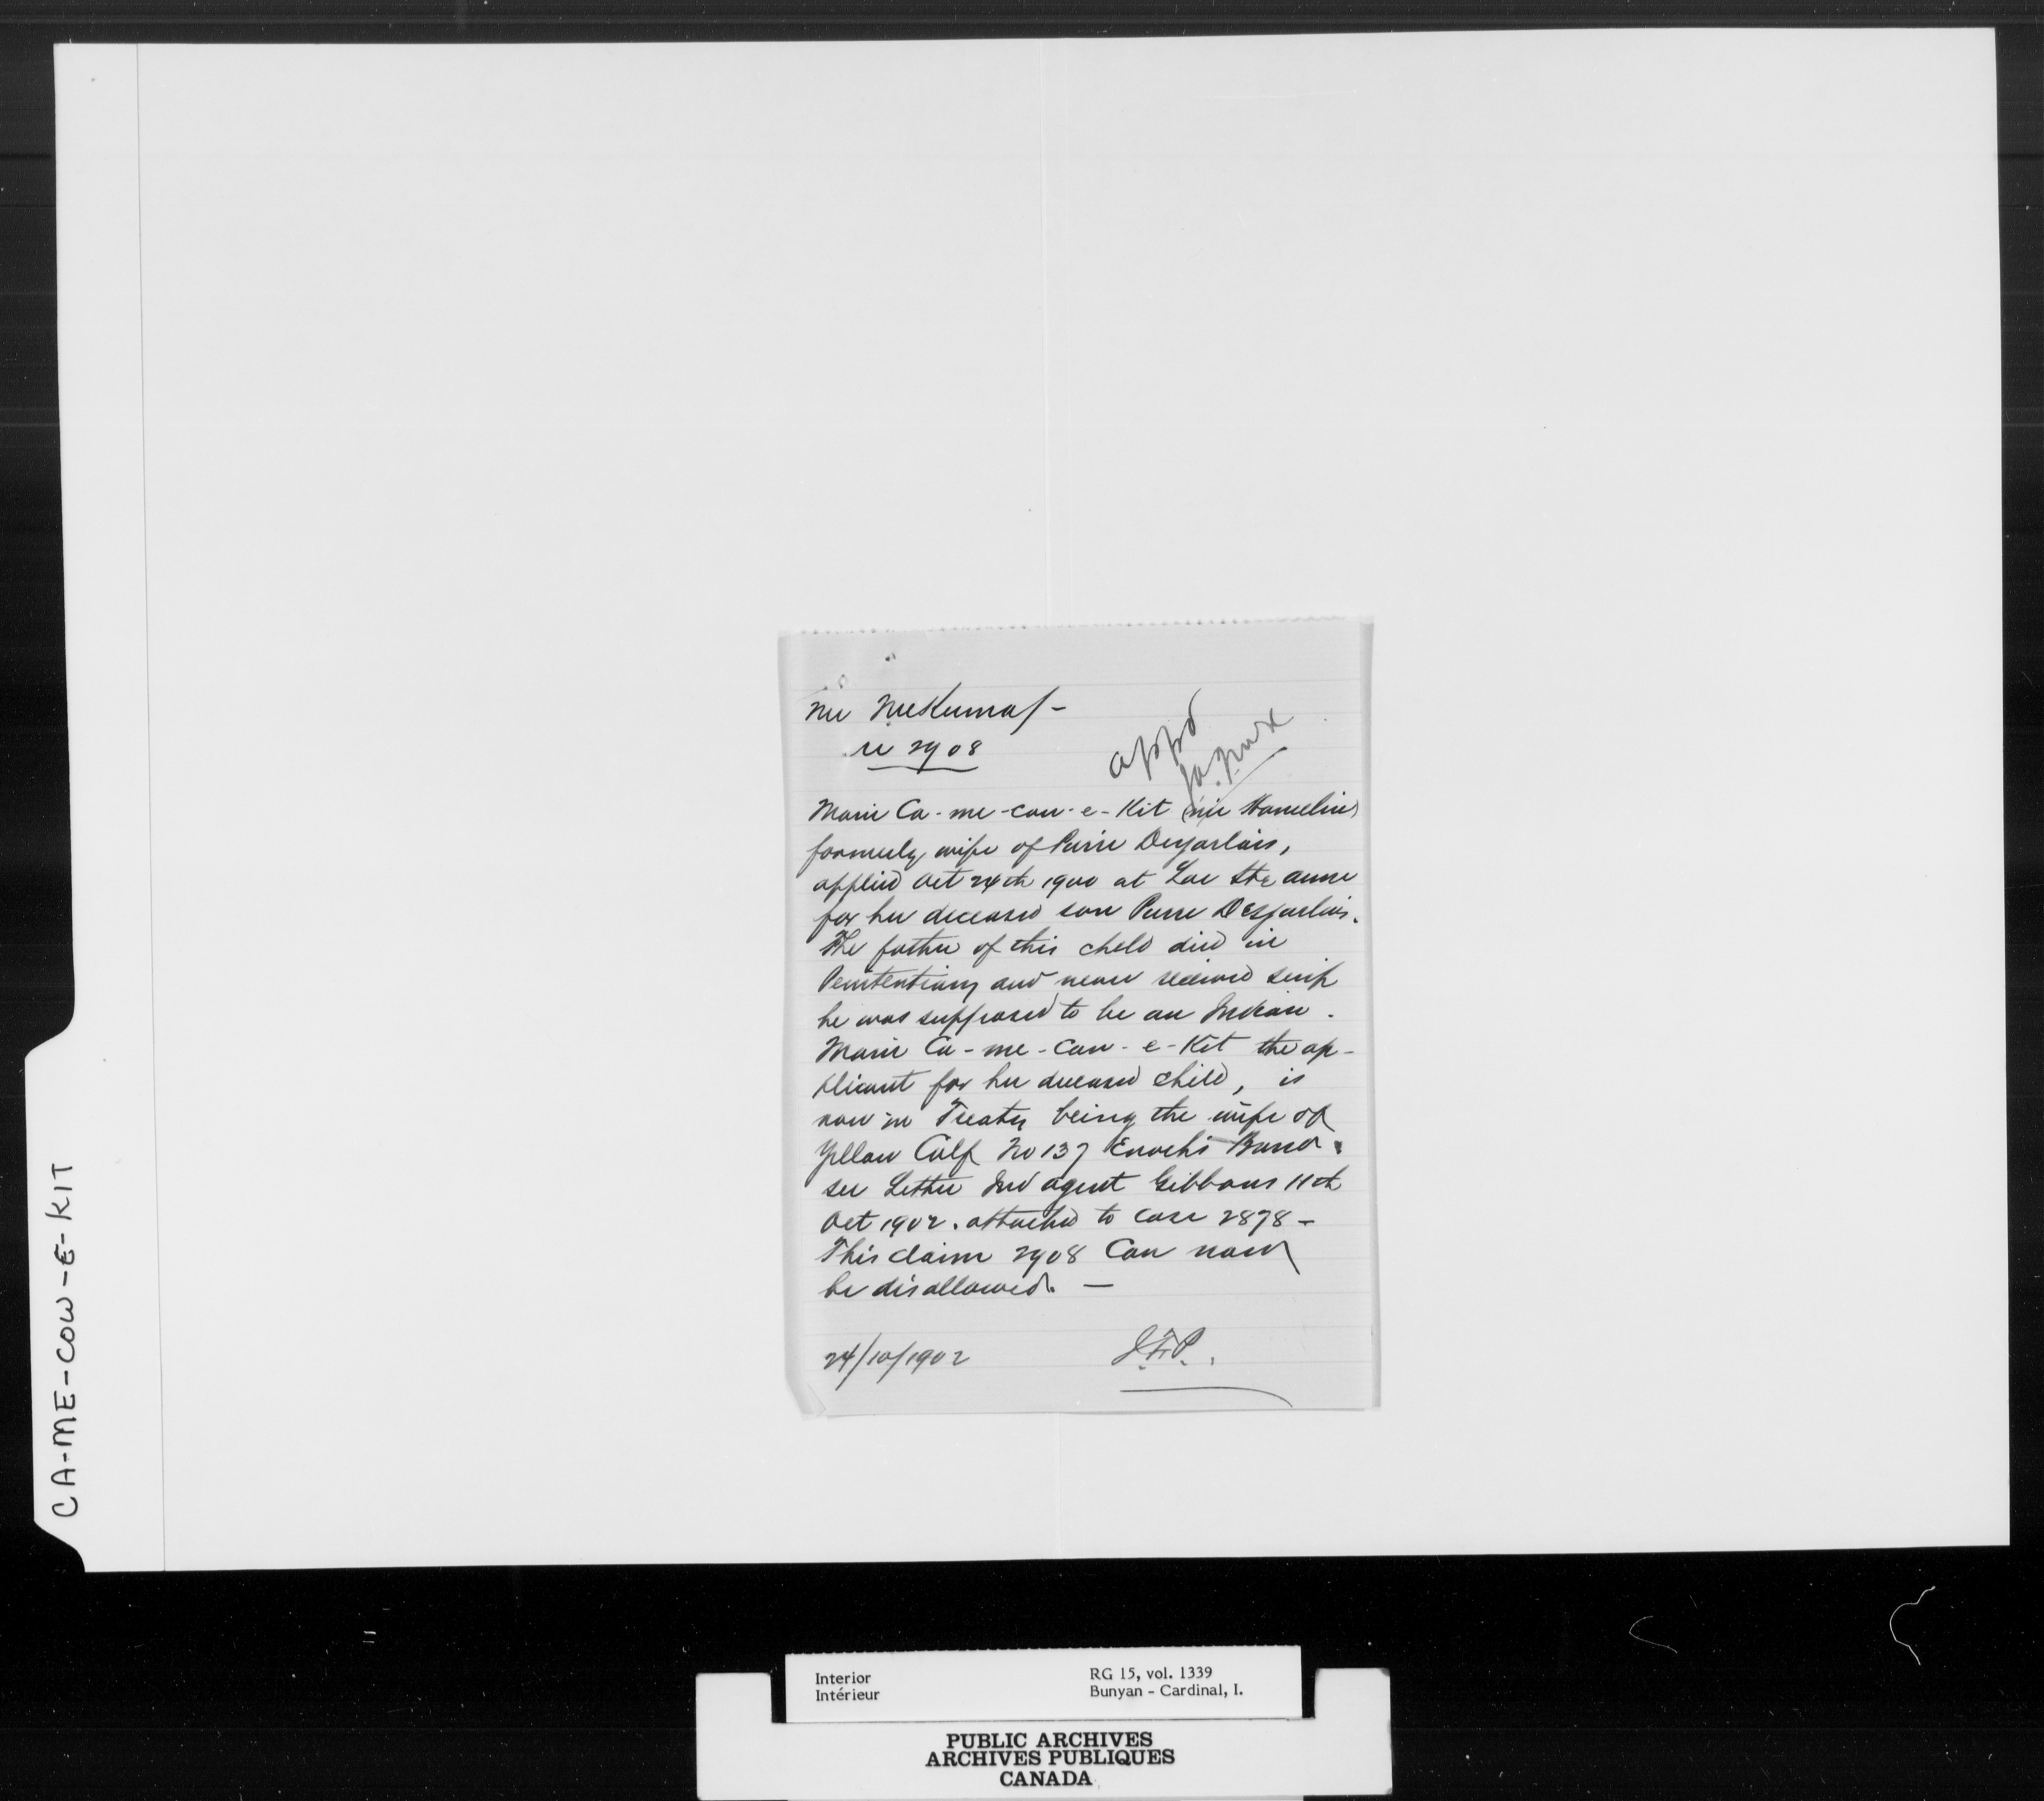 CA-ME-COW-E-KIT
re 2908
appd
Marie Ca-me-cow-e-Kit (née Hamelin)
formerly wife of Pierre Desjarlais,
applied Oct 24th 1900 at Lac Ste Anne
for her deceased son Pierre Desjarlais.
The father of this child died in
Penitentiary and never received scrip
he was supposed to be an Indian.
Marie Ca-me-cow-e-Kit the ap-
plicant for her deceased child, is
now in Treaty being the wife of
Yellow Calf No 137 Enoch's Band.
see Letter Ind agent Gibbons 11th
Oct 1902. attached to case 2878 -
This claim 2908 Can now
be disallowed. —
24/10/1902
Interior
Intérieur
RG 15, vol. 1339
Bunyan - Cardinal, I.
PUBLIC ARCHIVES
ARCHIVES PUBLIQUES
CANADA